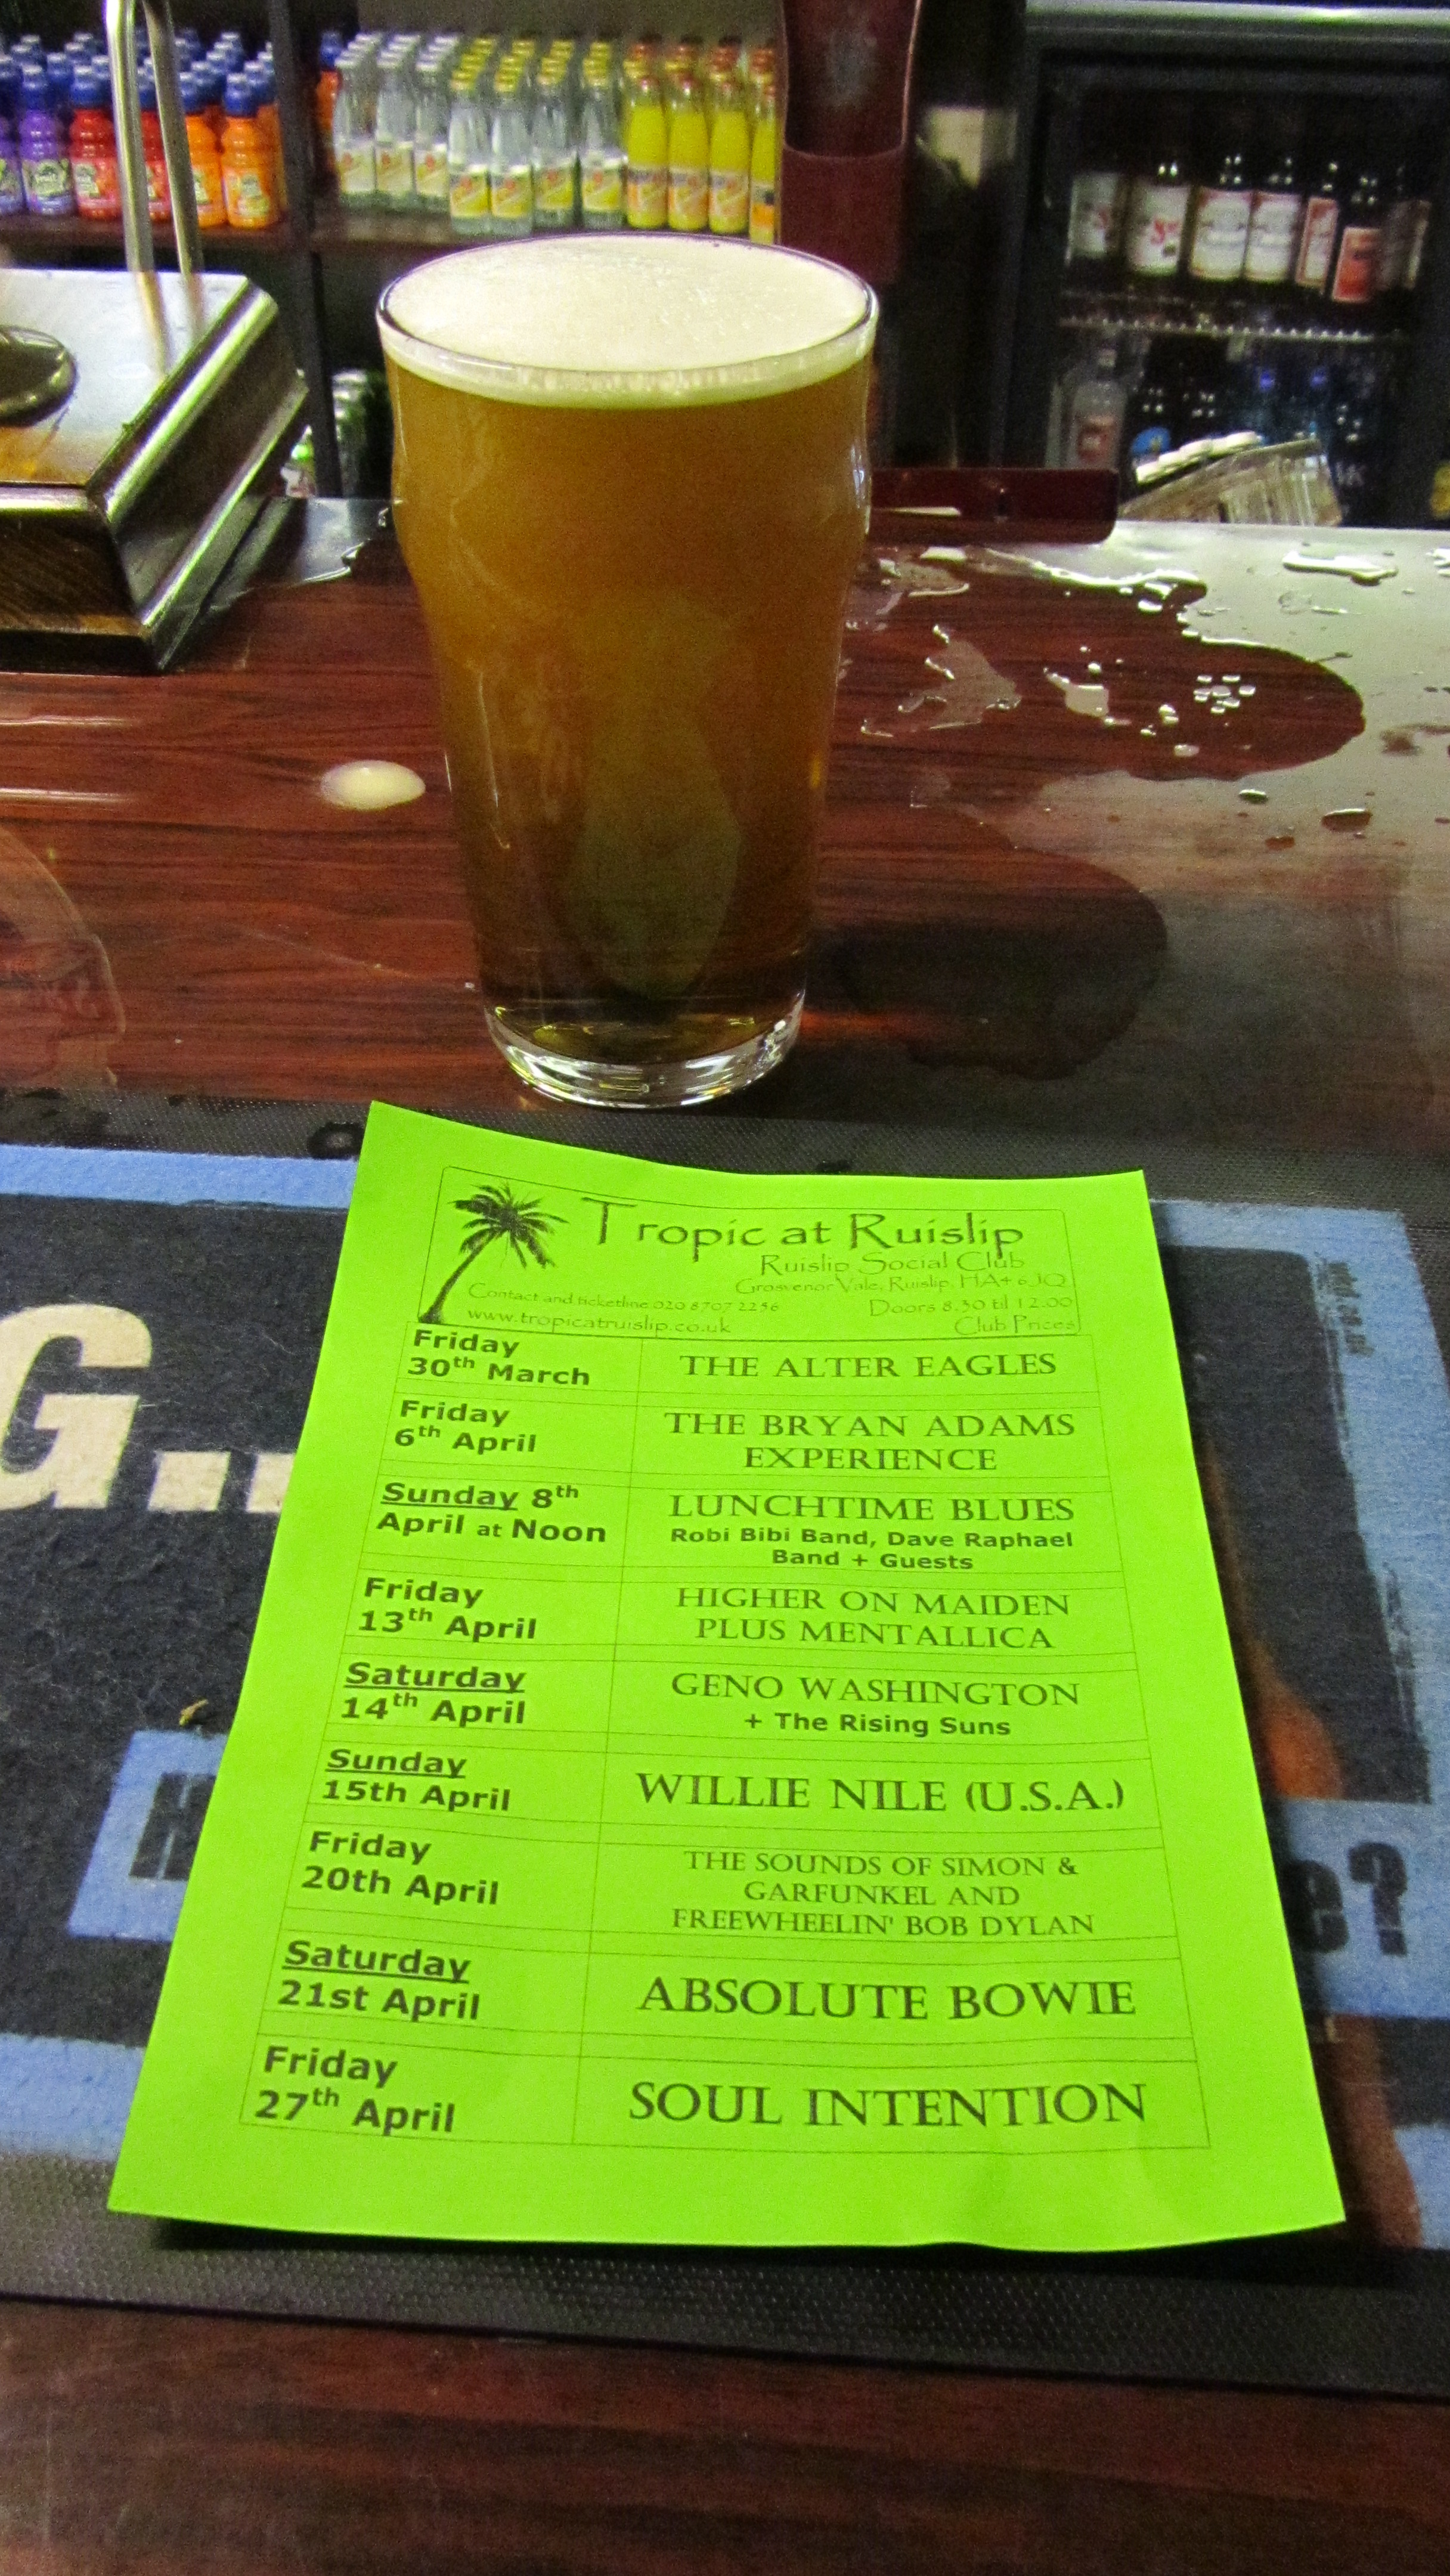 Tropic at Ruislip
Ruislip Social Club
Grosvenor Vale, Ruislip, HA4 6JQ
Contact and ticketline 020 8707 2256
Doors 8.30 til 12.00
www.tropicatruislip.co.uk
Club Prices
Friday
30th March
THE ALTER EAGLES
Friday
6th April
THE BRYAN ADAMS
EXPERIENCE
Sunday 8th
April at Noon
LUNCHTIME BLUES
Robi Bibi Band, Dave Raphael
Band + Guests
Friday
13th April
HIGHER ON MAIDEN
PLUS MENTALLICA
Saturday
14th April
GENO WASHINGTON
+ The Rising Suns
Sunday
15th April
WILLIE NILE (U.S.A.)
Friday
20th April
THE SOUNDS OF SIMON &
GARFUNKEL AND
FREEWHEELIN' BOB DYLAN
Saturday
21st April
ABSOLUTE BOWIE
Friday
27th April
SOUL INTENTION
G...
e?